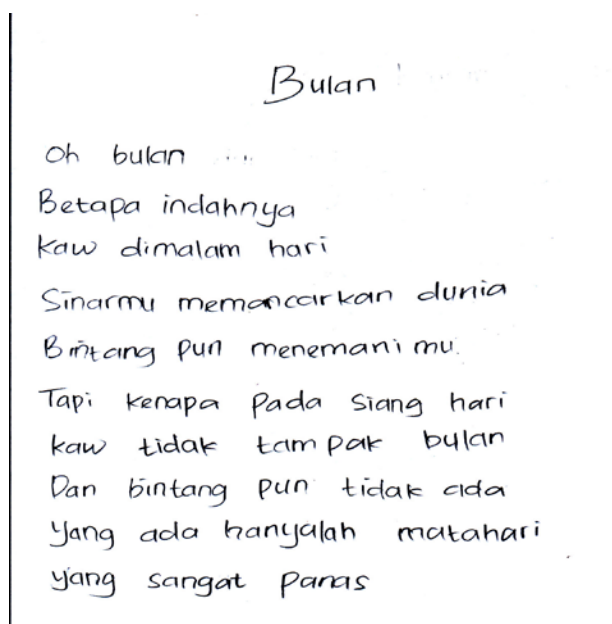 Bulan
Oh bulan ...
Betapa indahnya
kaw dimalam hari
Sinarmu memancarkan dunia
Bintang pun menemani mu.
Tapi kenapa pada siang hari
kaw tidak tampak bulan
Dan bintang pun tidak ada
Yang ada hanyalah matahari
yang sangat panas